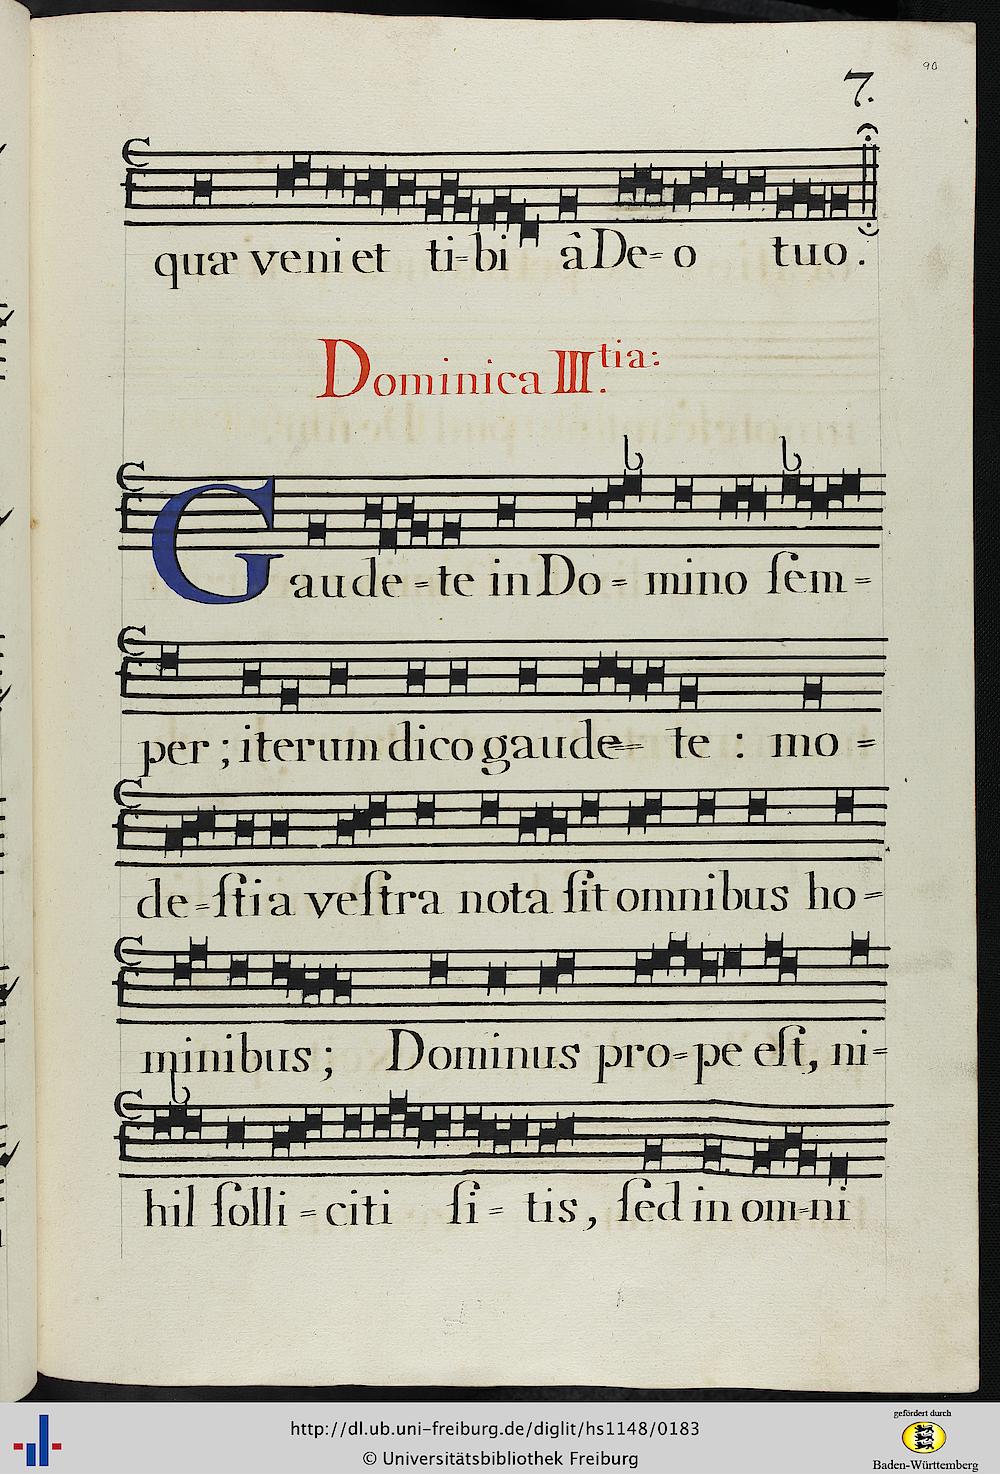 90
7.
quæ veni et ti=bi â De=o tuo.
Dominica III.tia:
Gaude=te in Do=mino ſem=
per; iterum dico gaude= te: mo=
de=ſtia veſtra nota ſit omnibus ho=
minibus; Dominus pro=pe eſt, ni=
hil ſolli=citi ſi=tis, ſed in om=ni
http://dl.ub.uni-freiburg.de/diglit/hs1148/0183
© Universitätsbibliothek Freiburg
gefördert durch
Baden-Württemberg